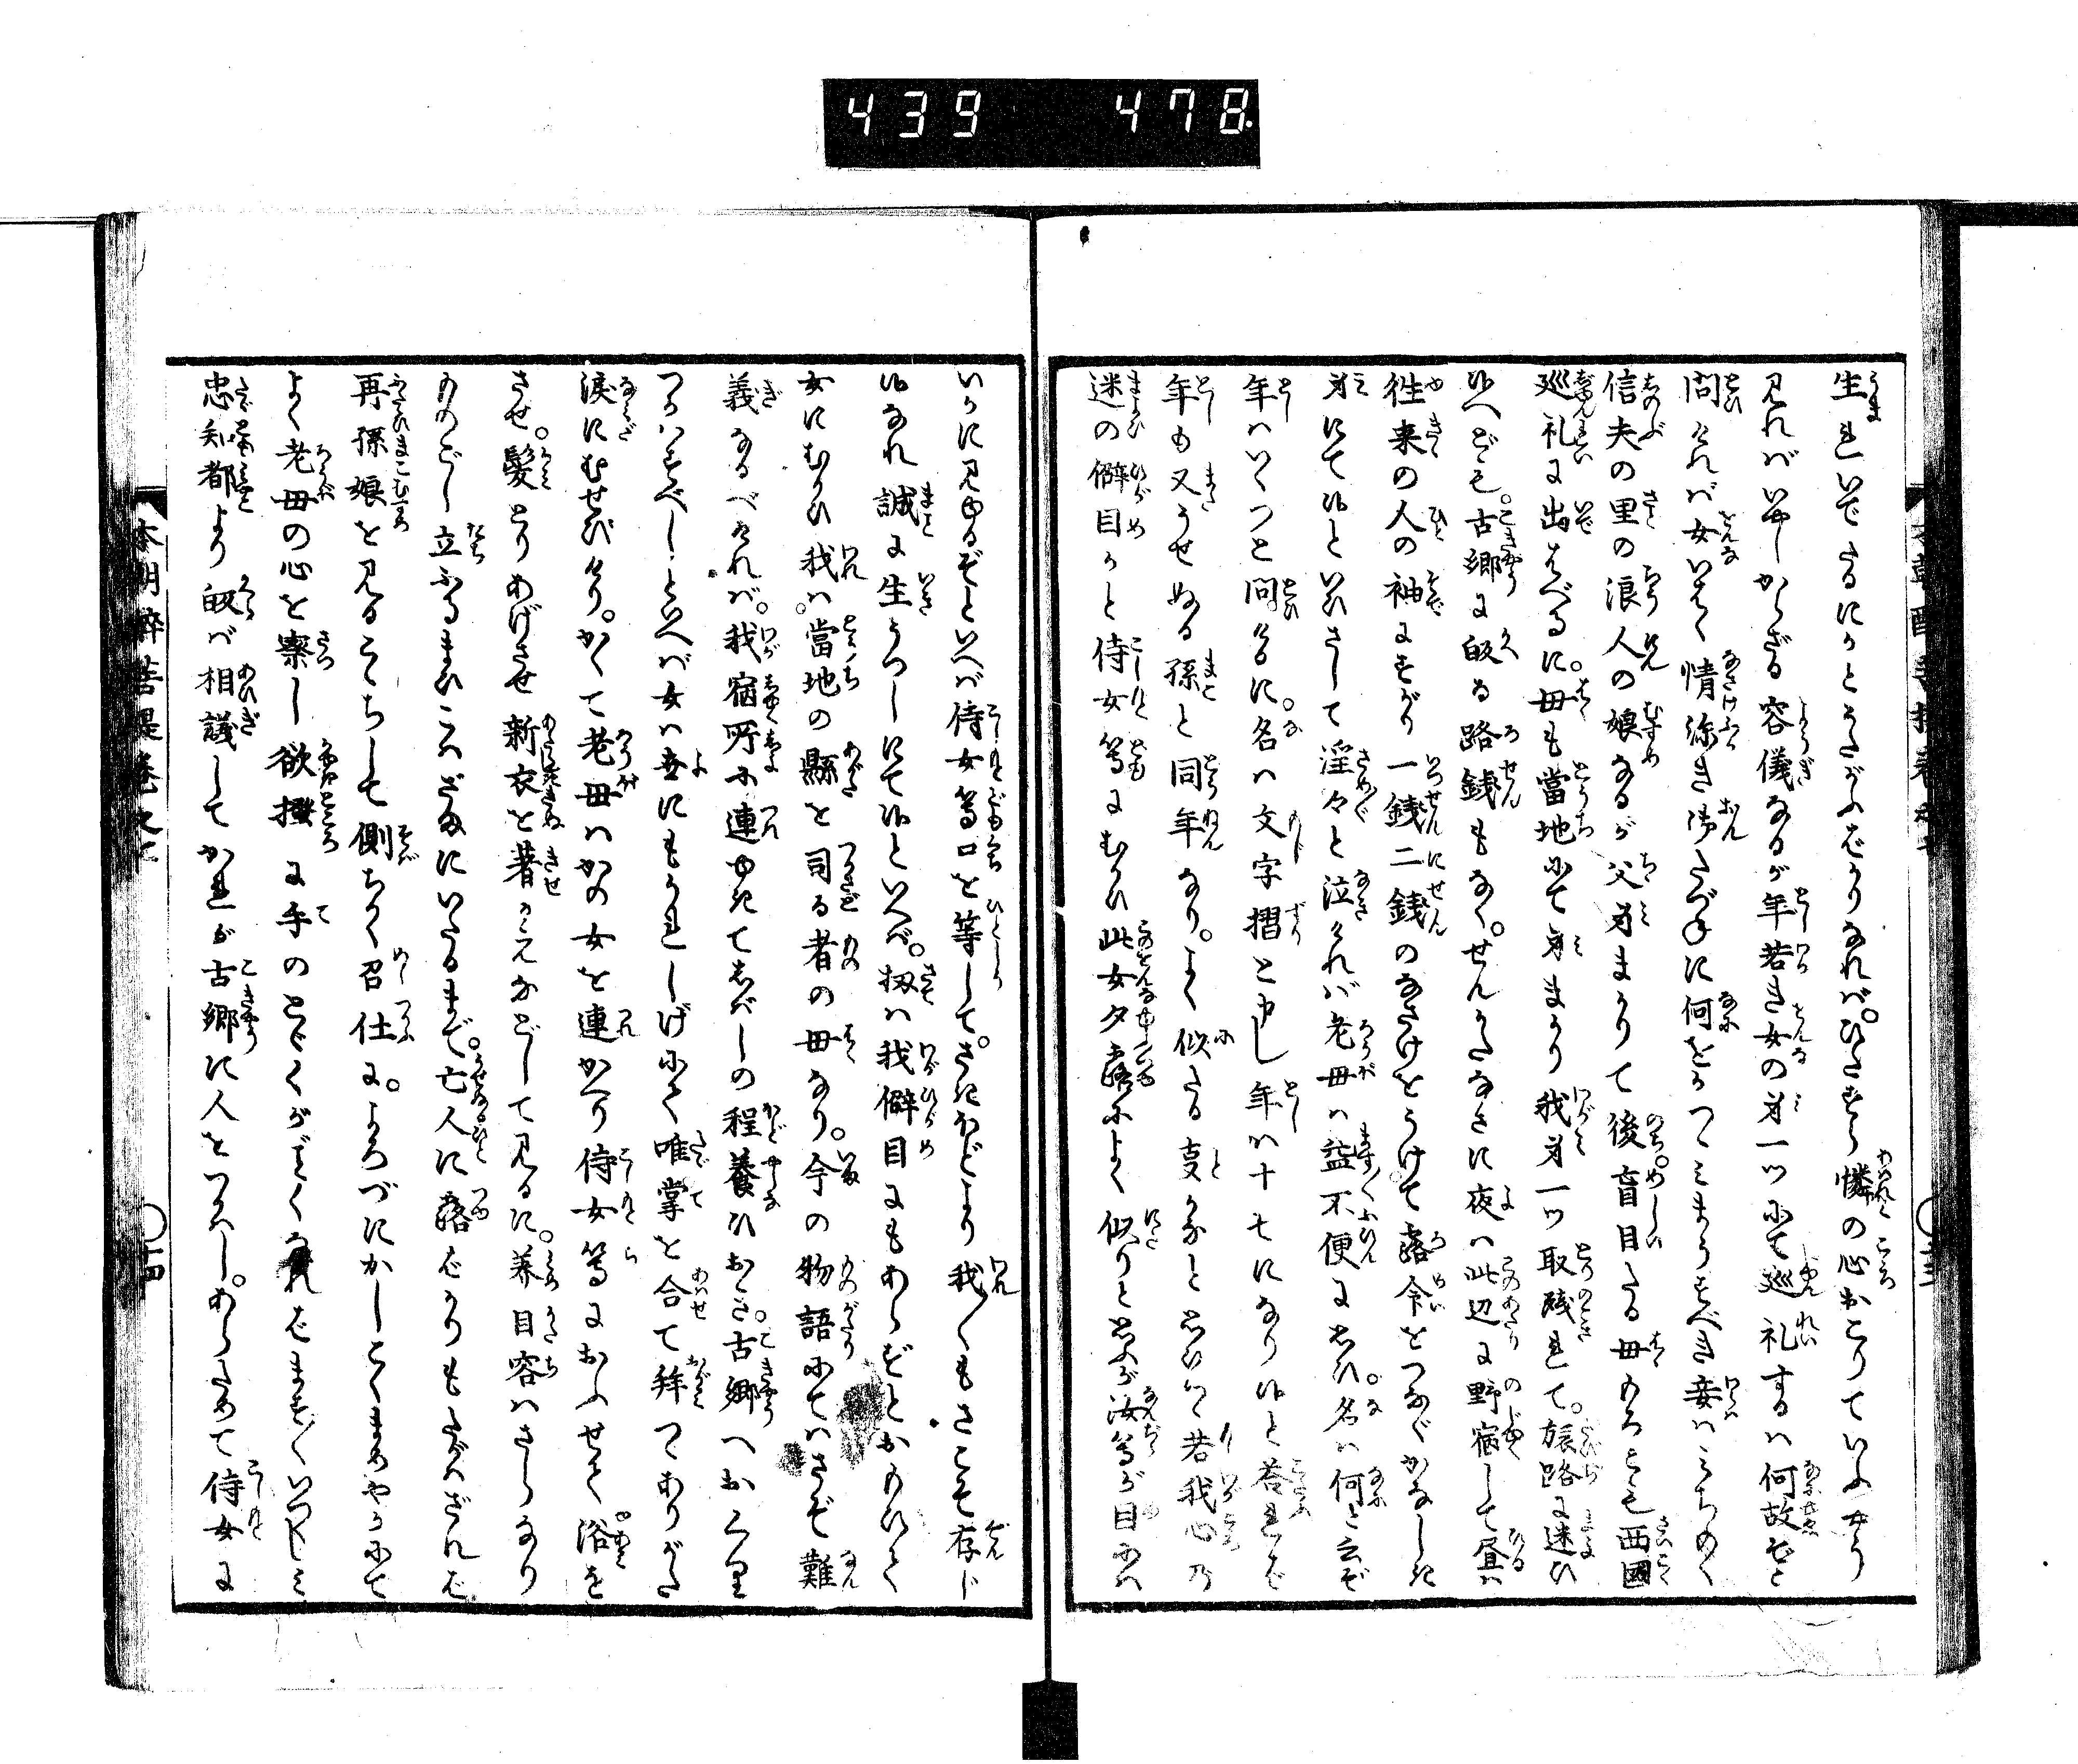 439 478
生れいでたるにかとうたがふばかりなれば。ひたすら憐の心おこりていふやう
見ればいやしからざる容儀なるが年若き女の身一ツにて巡礼するは何故ぞと
問ければ女いらく情深き御たづねに何をかつゝみまうすべき妾はみちのく
信夫の里の浪人の娘なるが父身まかりて後盲目たる母もろとも西國
巡礼に出はべるに。母も當地にて身まかり我身一ツ取残れて。旅路に迷ひ
候へども。古郷に皈る路銭もなく。せんかたなさに夜は此辺に野宿して昼は
徃来の人の袖にすがり一銭二銭のなさけをうけて露命をつなぐかなしき
身にて候といひさして淫々と泣ければ老母は益不便に思ひ名は何と云ぞ
年はいくつと問けるに。名は文字摺と申し年は十七になり候と答れば
年も又うせぬる孫と同年なり。よく似たる事かなと思ひつゝ若我心の
迷の僻目かと侍女等にむかひ此女夕露によく似りと思ふが汝等が目には
いかに見ゆるぞといへば侍女等口を等して。さきほどより我〳〵もさこそ存じ
候なれ誠に生うつしにて候といへば。扨は我僻目にもあらずとおもひつゝ
女にむかひ我は。當地の縣を司る者の母なり。今の物語にてはさぞ難
義なるべければ。我宿所に連ゆきてしばしの程養ひおき。古郷へおくり
つかはすべしといへば女は世にもうれしげにて唯掌を合て拝つゝありがた
涙にむせびけり。かくて老母はかの女を連かへり侍女等におふせて浴を
させ。髪とりあげさせ新衣を著かえなどして見るに。養目容はさらなり
ものごし立ふるまひこはざまにいたるまで。亡人に露ばかりもたがはざれば
再孫娘を見るこゝちして側ちかく召仕に。よろづにかしこくまめやかにて
よく老母の心を察し欲掻に手のとゞくがごとくなればます〳〵いつくしみ
忠知都より皈ば相議してかれが古郷に人をつかはし。あらためて侍女に
本朝酔菩提巻之七
十四